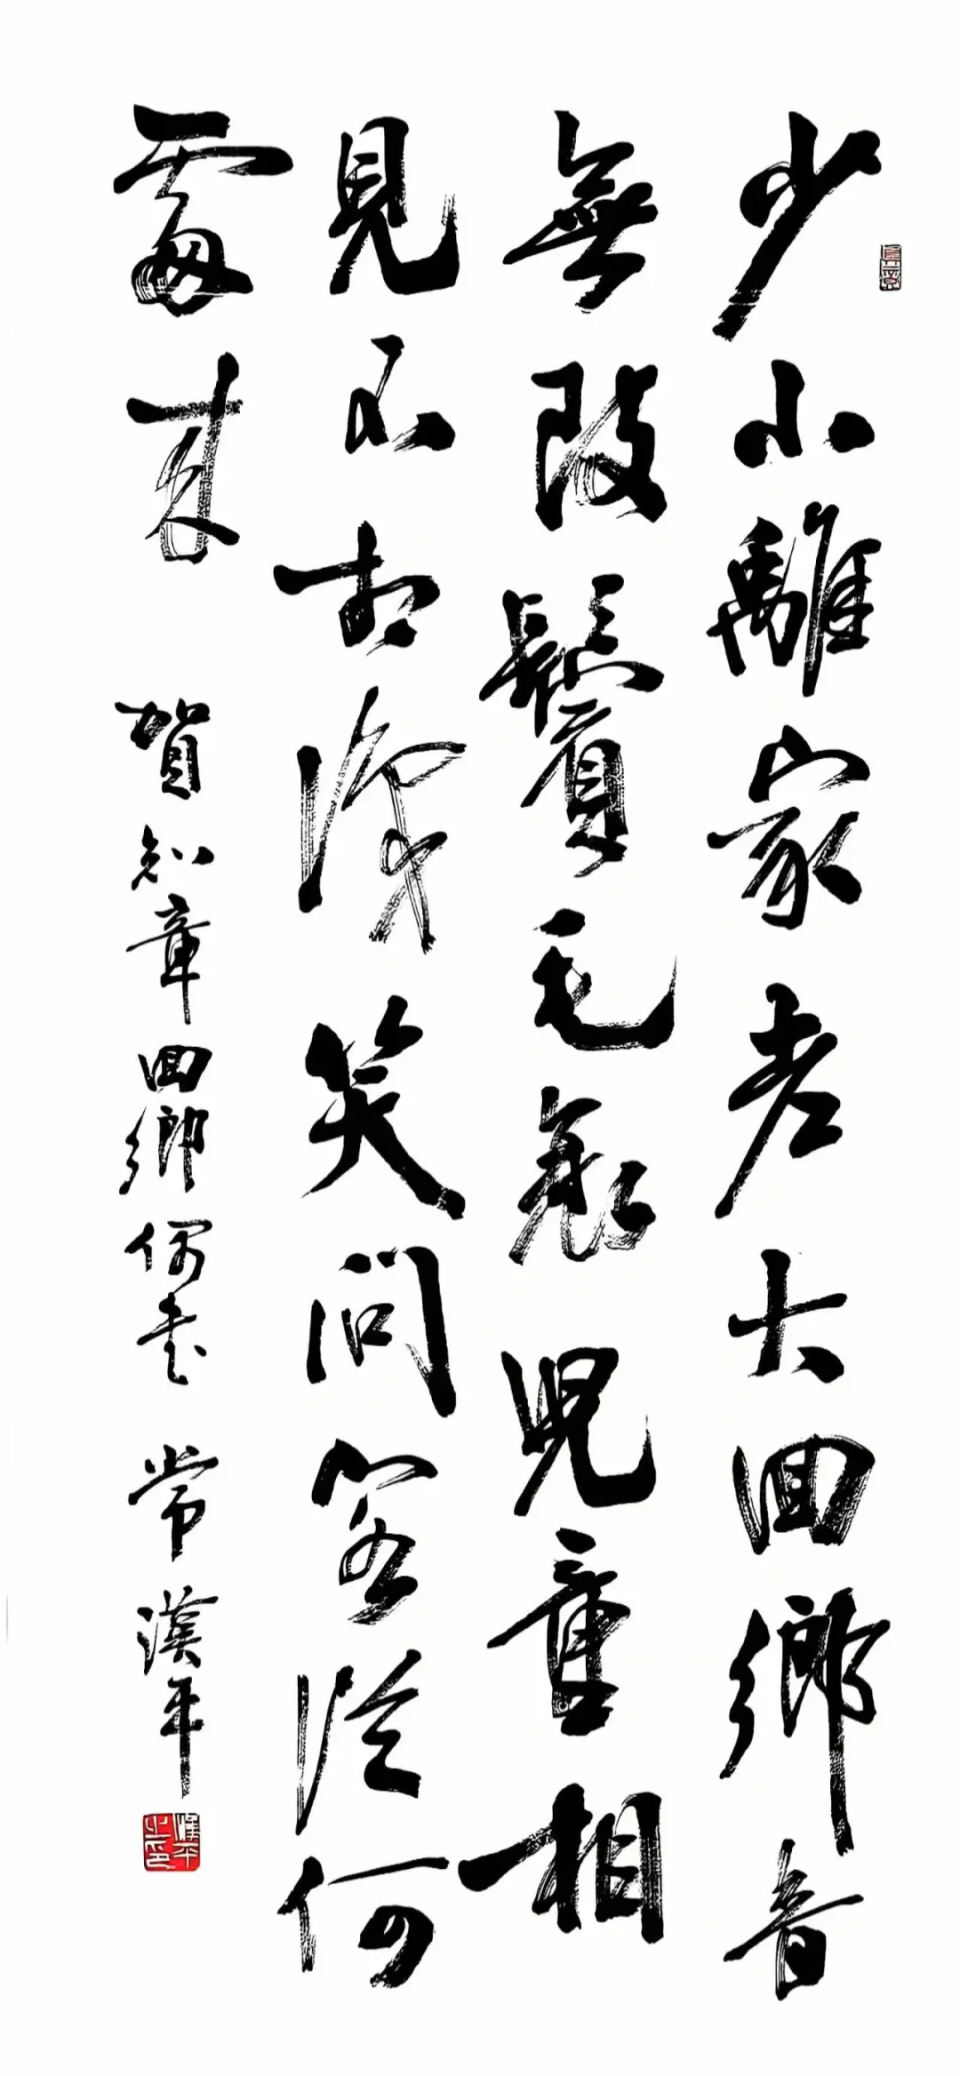 少小離家老大回鄉音
無改鬢毛衰兒童相
見不相識笑問客從何
處來 賀知章回鄉偶書 常漢平
漢平之印